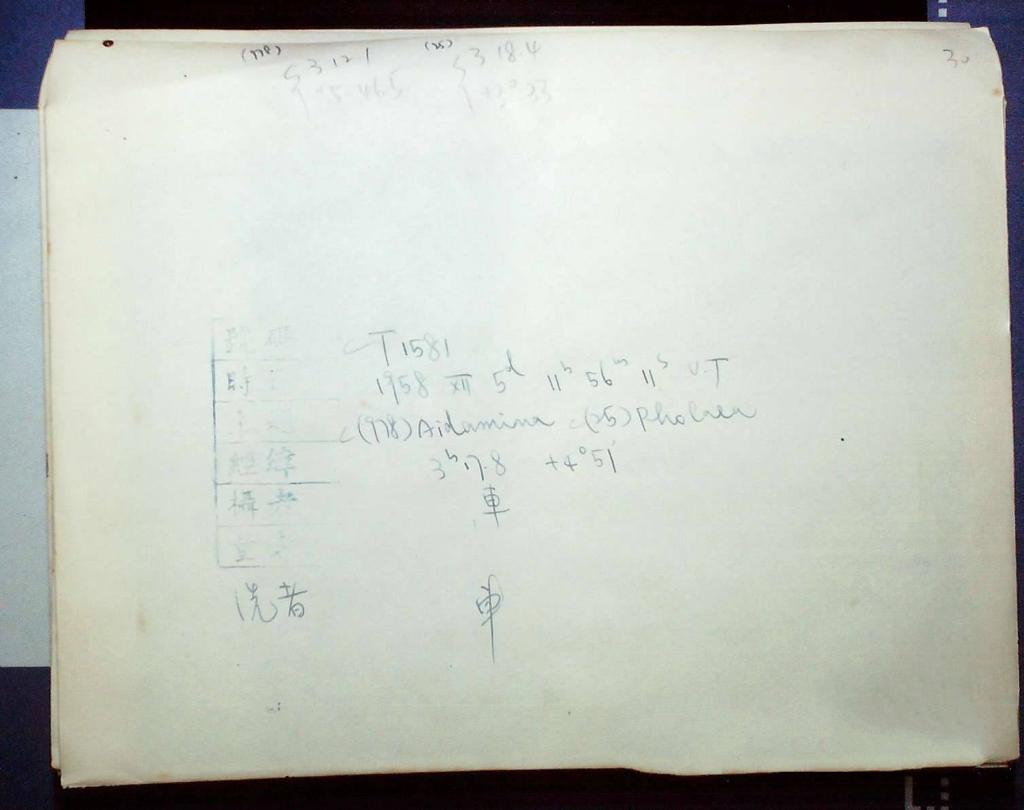 (978) { 3 12.1 (25) { 3 18.4 30
+5 46.5 +3° 33
號碼 T 1581
時 1958 XII 5d 11h 56m 11s U.T
(978) Aidamina (25) Phocaea
經緯 3h 17.8 +4° 51'
攝者 車
洗者 車